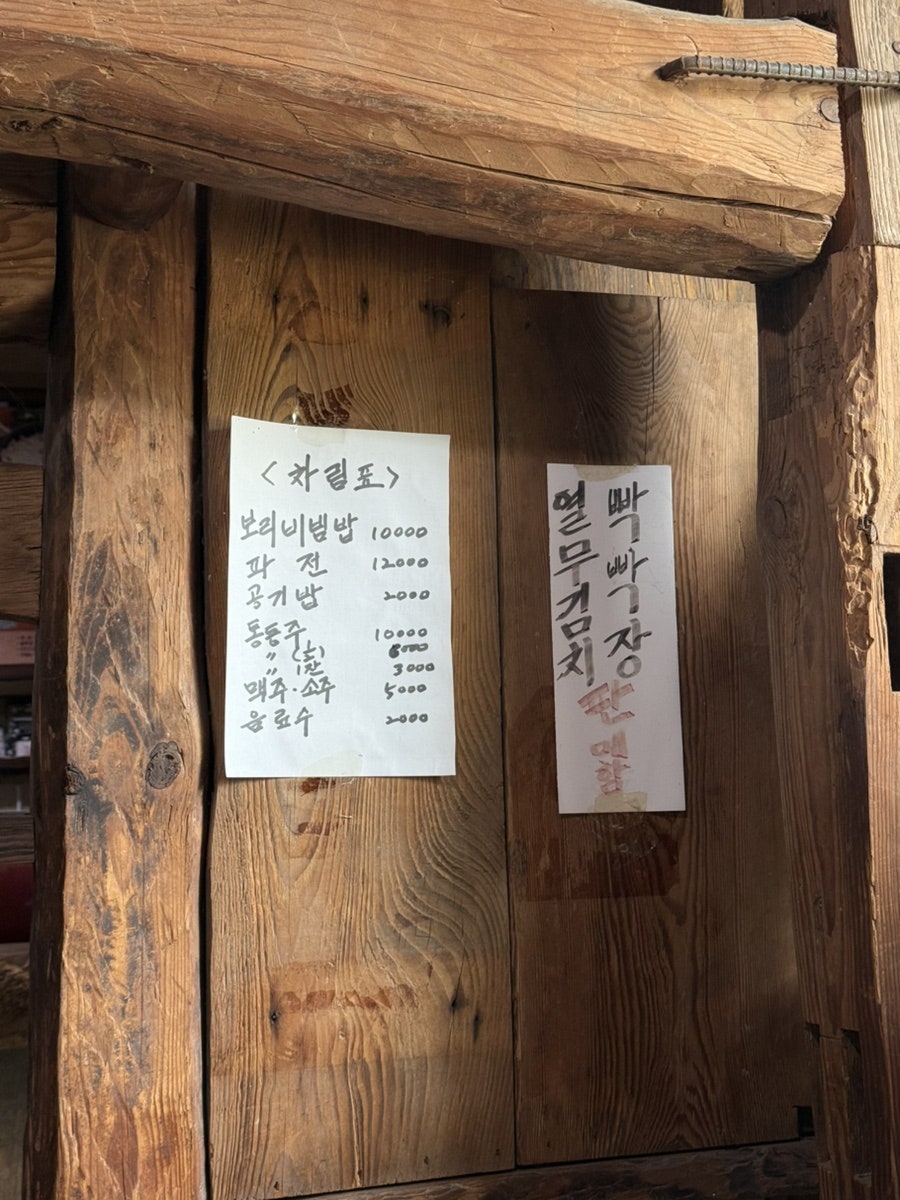 <차림표>
보리비빔밥 10000
파 전 12000
공기밥 2000
동동주 10000
〃 (소) 6000
〃 1잔 3000
맥주·소주 5000
음료수 2000
빡빡장
열무김치
판매함